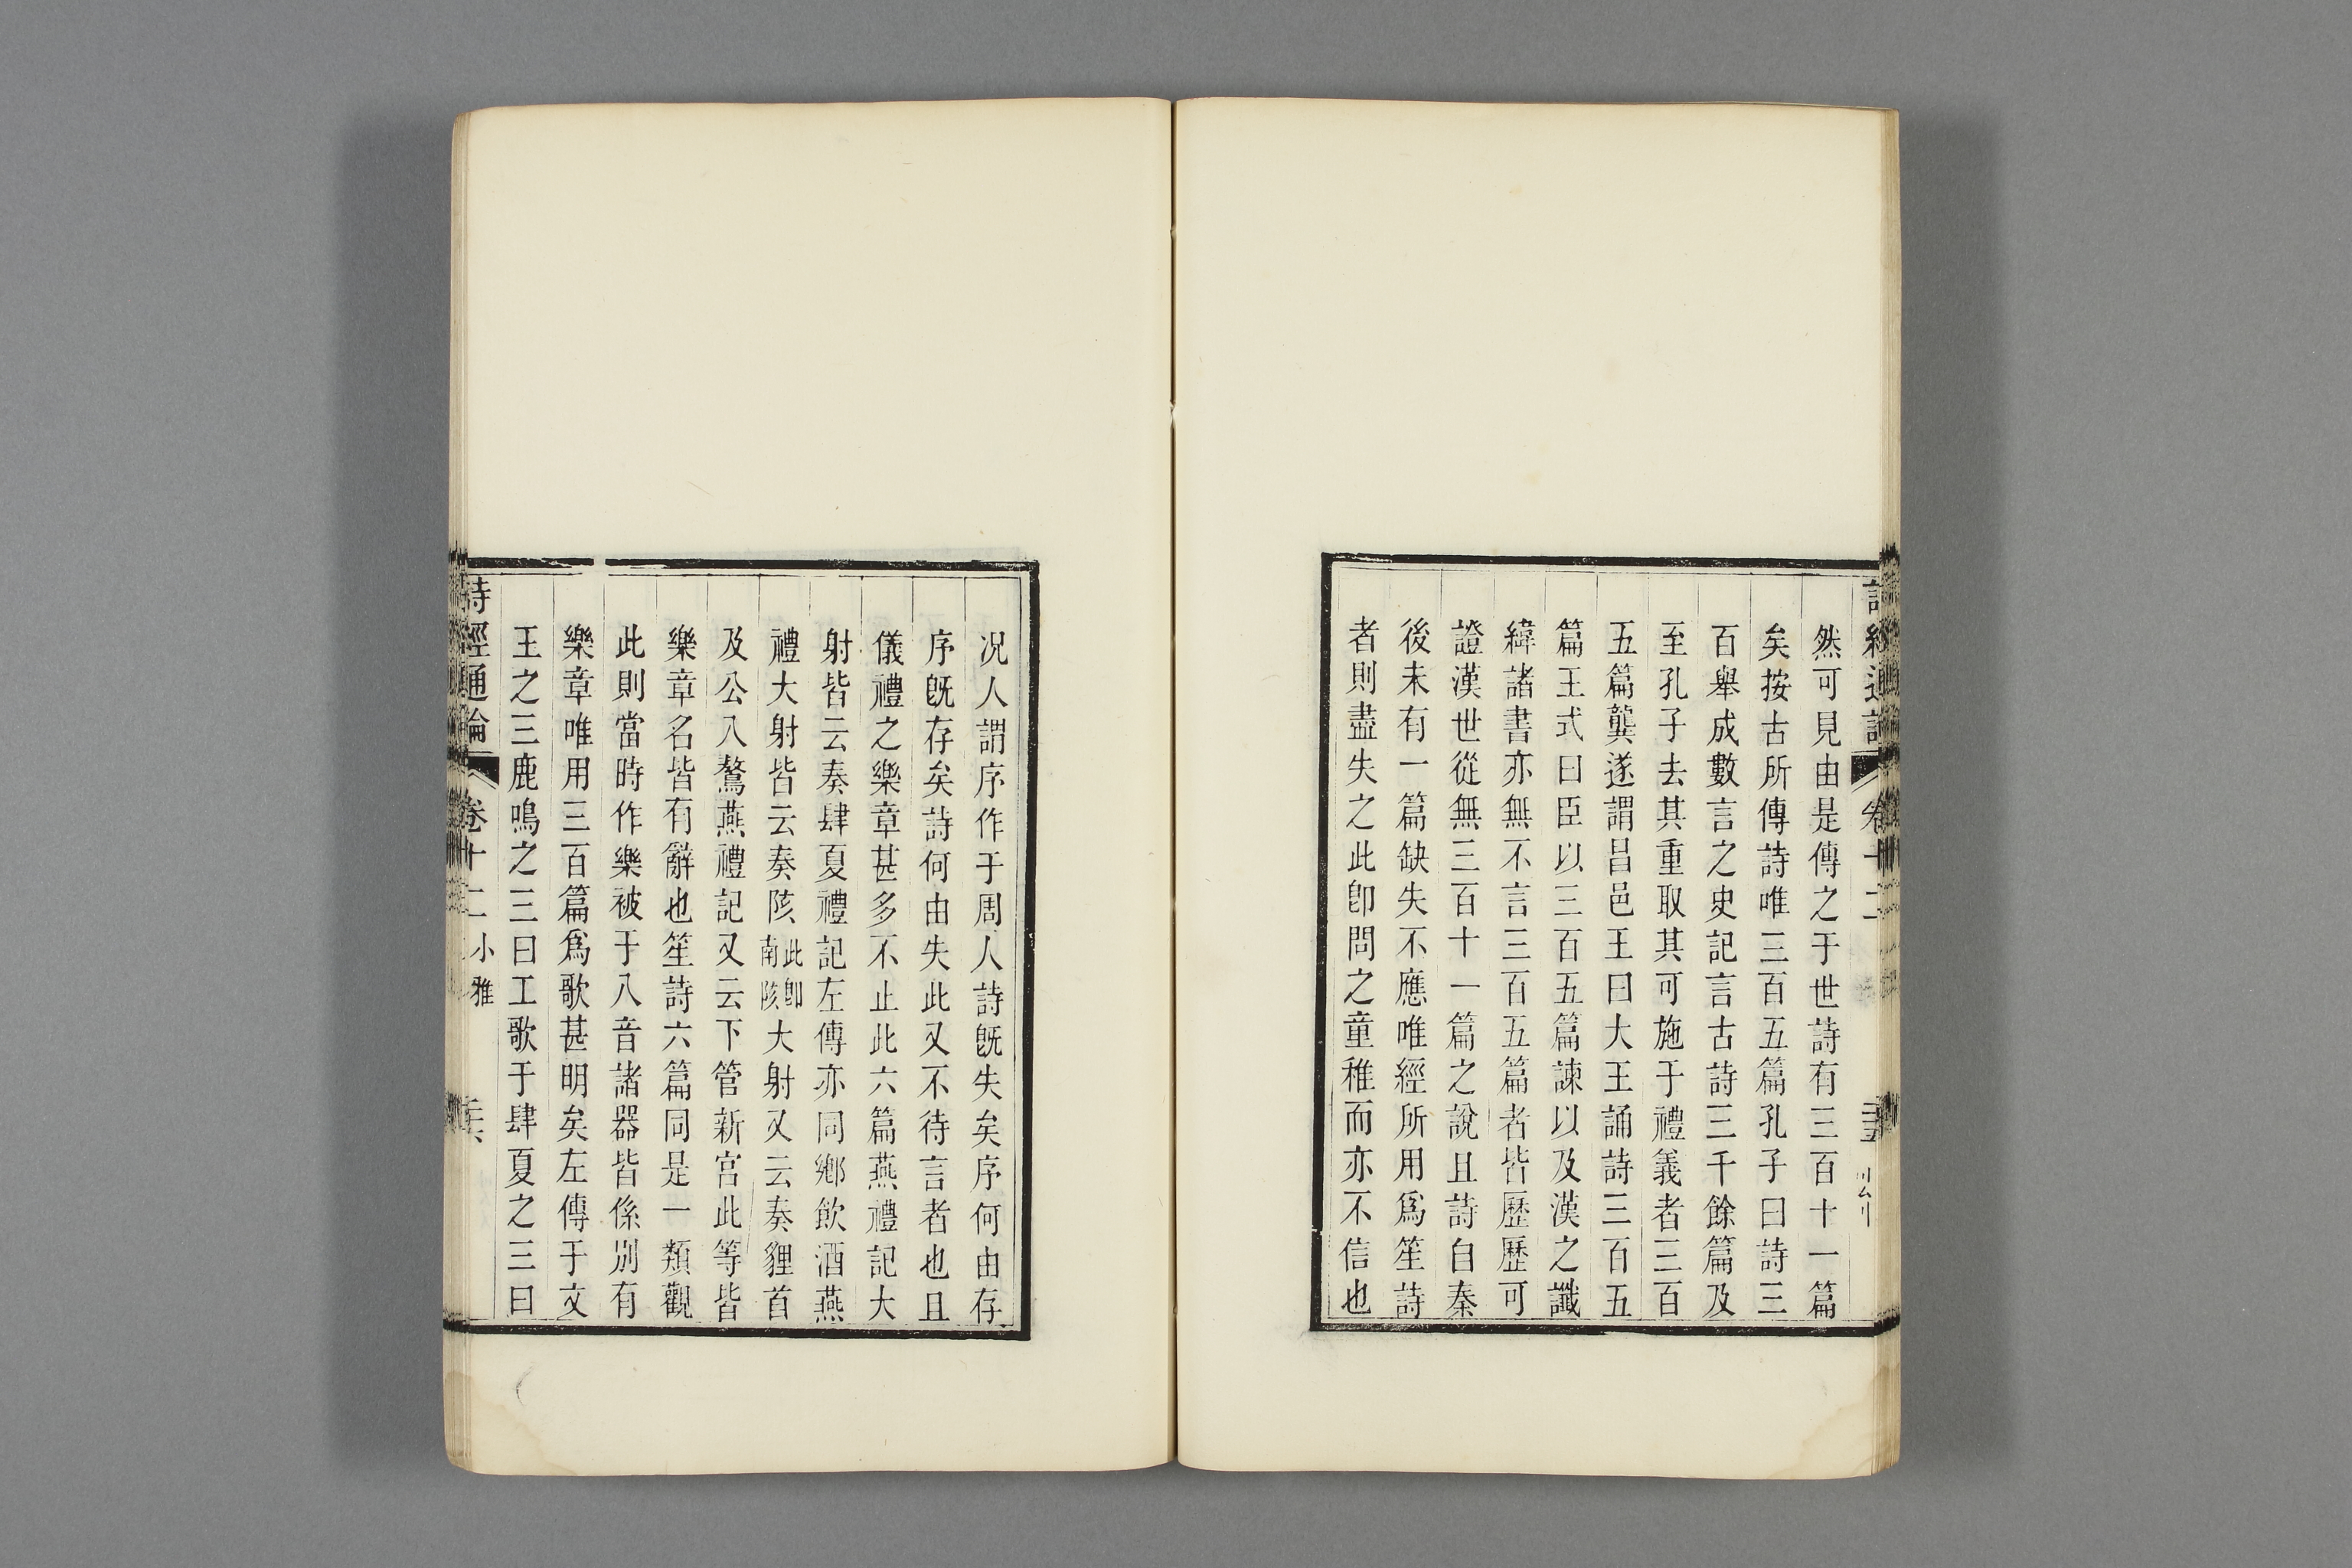 詩經通論 卷十二
然可見由是傳之于世詩有三百十一篇
矣按古所傳詩唯三百五篇孔子曰詩三
百舉成數言之史記言古詩三千餘篇及
至孔子去其重取其可施于禮義者三百
五篇龔遂謂昌邑王曰大王誦詩三百五
篇王式曰臣以三百五篇諫以及漢之讖
緯諸書亦無不言三百五篇者皆歷歷可
證漢世從無三百十一篇之說且詩自秦
後未有一篇缺失不應唯經所用爲笙詩
者則盡失之此卽問之童稚而亦不信也
况人謂序作于周人詩旣失矣序何由存
序旣存矣詩何由失此又不待言者也且
儀禮之樂章甚多不止此六篇燕禮記大
射皆云奏肆夏禮記左傳亦同鄉飲酒燕
禮大射皆云奏陔此卽南陔大射又云奏貍首
及公入驁燕禮記又云下管新宮此等皆
樂章名皆有辭也笙詩六篇同是一類觀
此則當時作樂被于八音諸器皆係別有
樂章唯用三百篇爲歌甚明矣左傳于文
王之三鹿鳴之三曰工歌于肆夏之三曰
詩經通論 卷十二 小雅